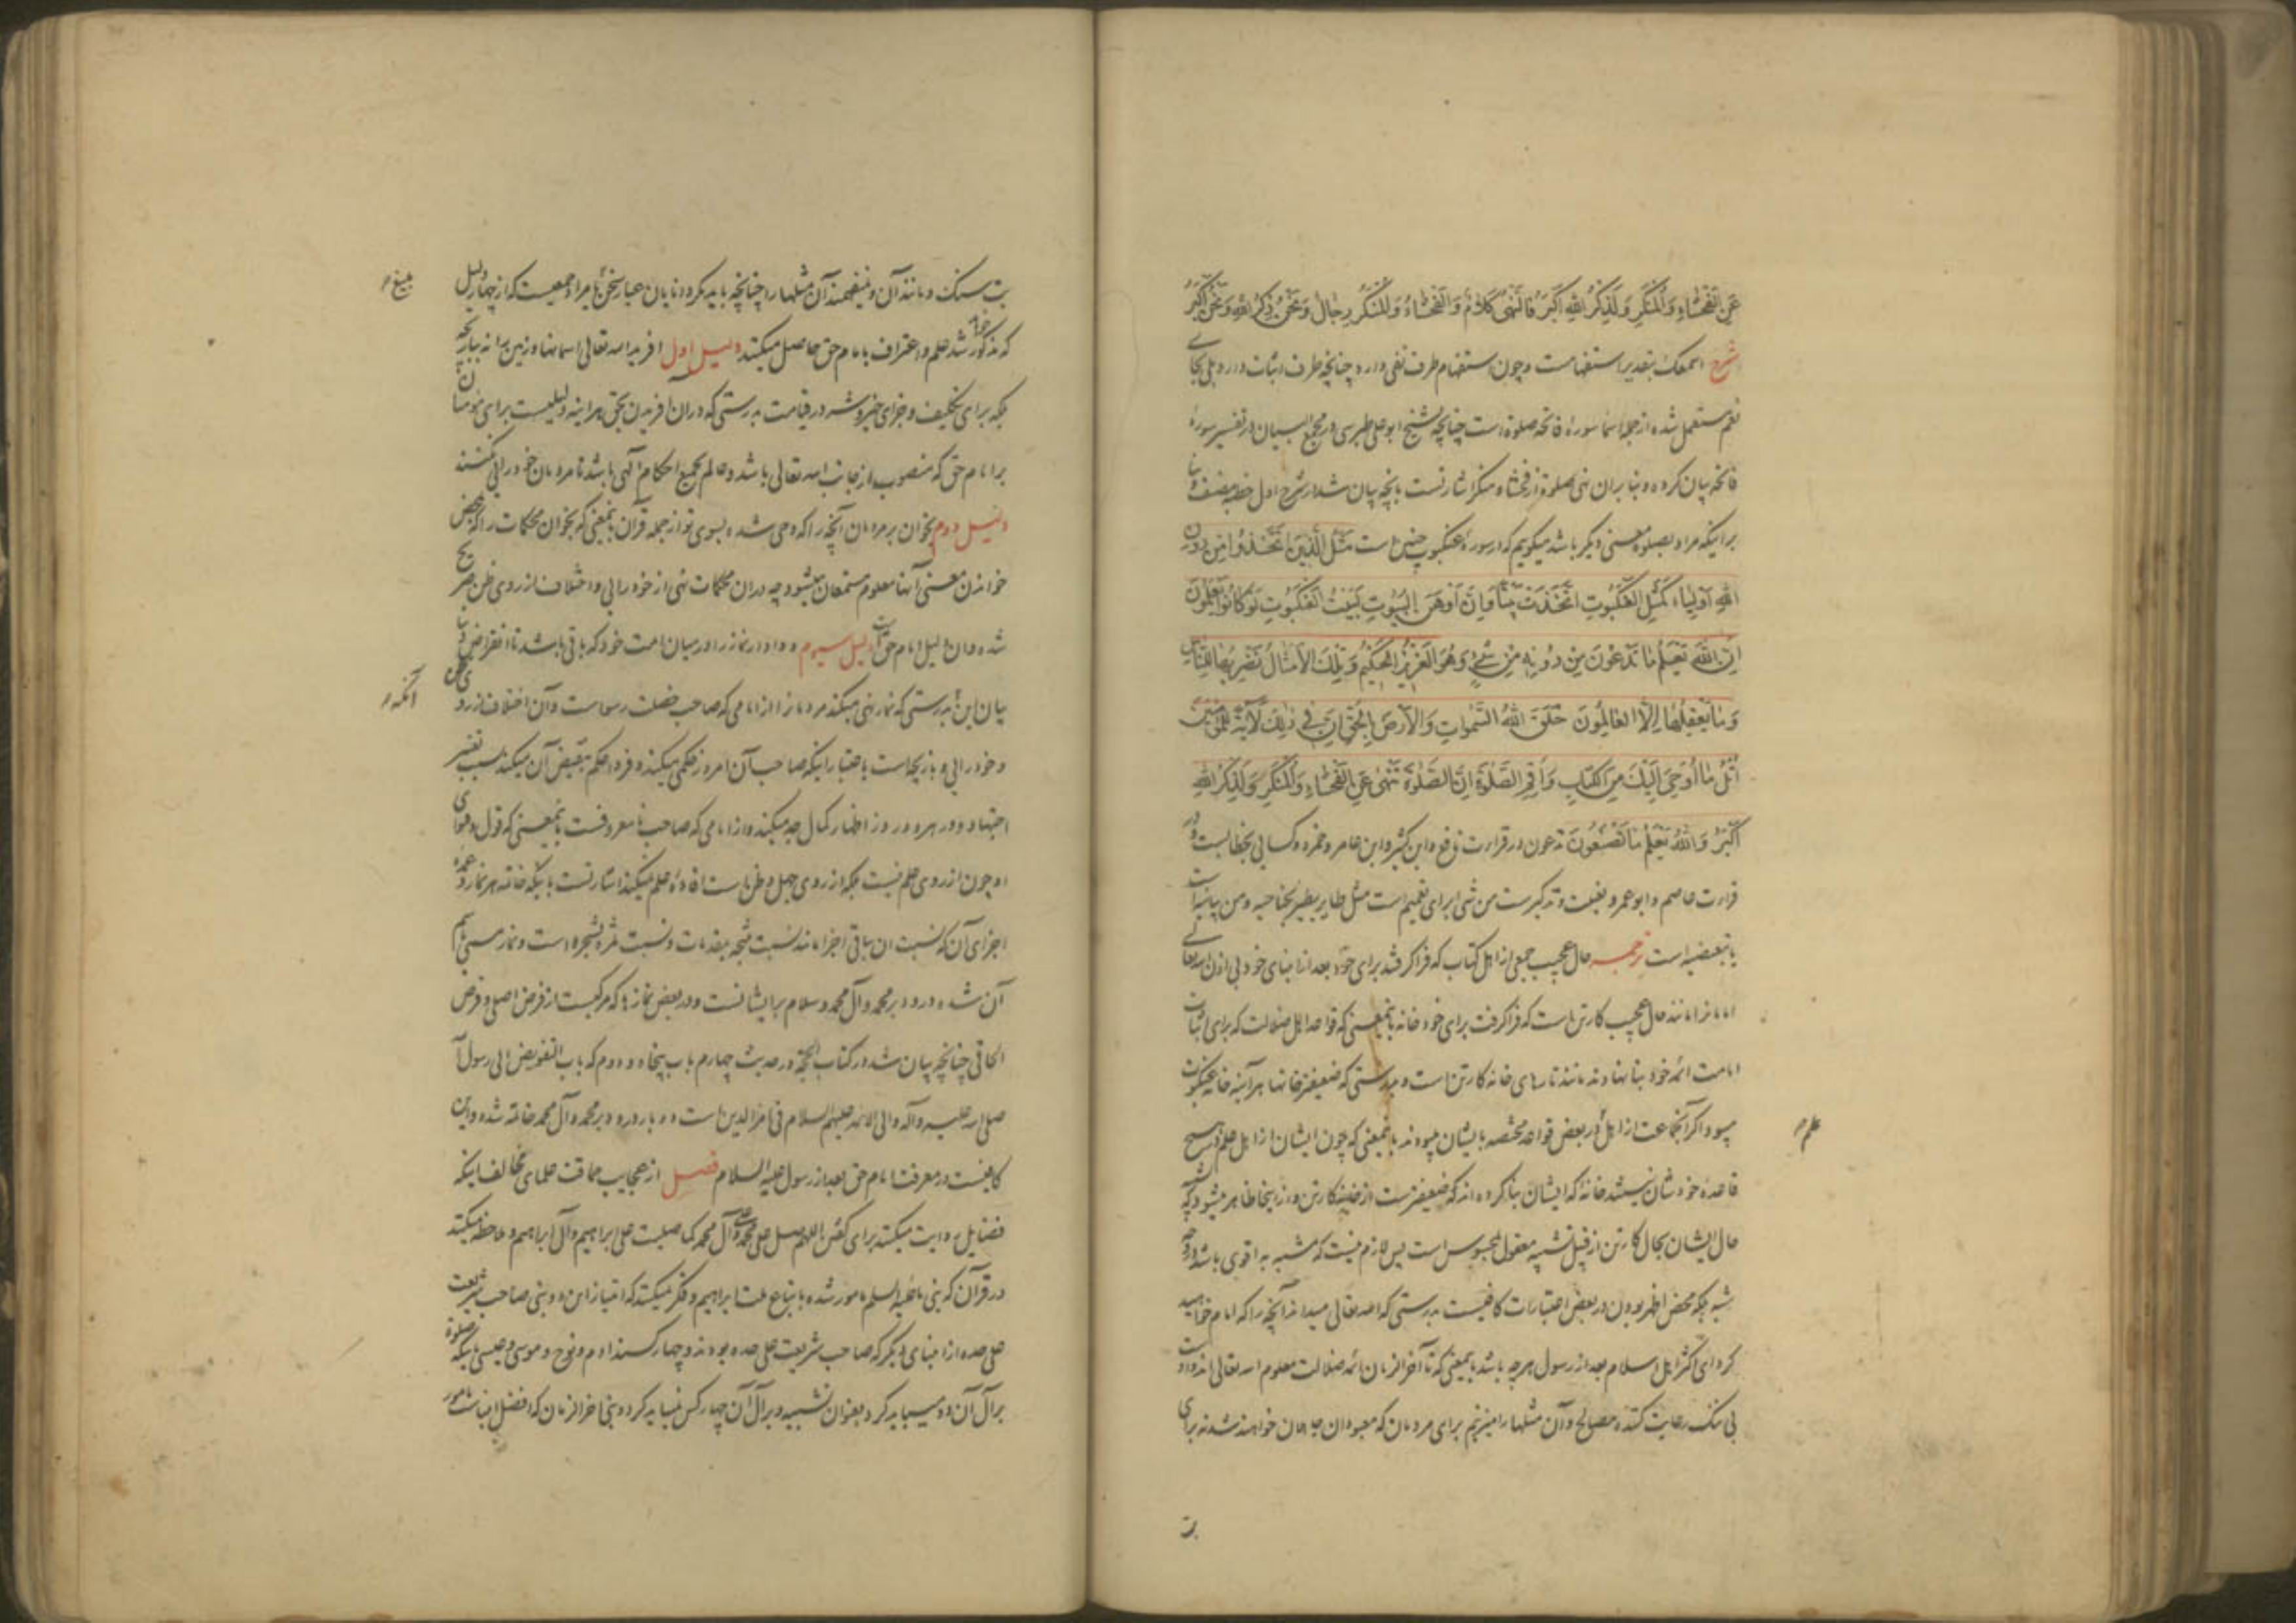 عَنِ الْفَحْشَاءِ وَالْمُنْكَرِ وَلَذِكْرُ اللهِ اَكْبَرُ فَالنَّهْیُ كَلَامٌ وَالْفَحْشَاءُ وَالْمُنْكَرُ رِجَالٌ وَنَحْنُ ذِكْرُ اللهِ وَنَحْنُ اَكْبَرُ
شرح اسمعک بتقدیر استفهامست وچون استفهام طرف نفی دارد چنانچه طرف اثبات دارد بلی بجای
نعم مستعمل شده از جمله اسما سورهٔ فاتحه صلوة است چنانچه شیخ ابوعلی طبرسی در مجمع البیان در تفسیر سورهٔ
فاتحه بیان کرده و بنا بران نهی صلوة از فحشا و منکر اشارتست بانچه بیان شد در شرح اول خطبه مصنف و بنا
برانیکه مراد بصلوة معنی دیگر باشد میگوییم که در سورهٔ عنکبوت چنین است مَثَلُ الَّذِينَ اتَّخَذُوا مِنْ دُونِ
اللهِ اَوْلِيَاءَ كَمَثَلِ الْعَنْكَبُوتِ اتَّخَذَتْ بَيْتًا وَاِنَّ اَوْهَنَ الْبُيُوتِ لَبَيْتُ الْعَنْكَبُوتِ لَوْ كَانُوا يَعْلَمُونَ
اِنَّ اللهَ يَعْلَمُ مَا تَدْعُونَ مِنْ دُونِهِ مِنْ شَيْءٍ وَهُوَ الْعَزِيزُ الْحَكِيمُ وَتِلْكَ الْاَمْثَالُ نَضْرِبُهَا لِلنَّاسِ
وَمَا يَعْقِلُهَا اِلَّا الْعَالِمُونَ خَلَقَ اللهُ السَّمٰوَاتِ وَالْاَرْضَ بِالْحَقِّ اِنَّ فِي ذٰلِكَ لَاٰيَةً لِلْمُؤْمِنِينَ
اُتْلُ مَا اُوحِيَ اِلَيْكَ مِنَ الْكِتَابِ وَاَقِمِ الصَّلٰوةَ اِنَّ الصَّلٰوةَ تَنْهٰى عَنِ الْفَحْشَاءِ وَالْمُنْكَرِ وَلَذِكْرُ اللهِ
اَكْبَرُ وَاللهُ يَعْلَمُ مَا تَصْنَعُونَ تدعون در قراءت نافع وابن کثیر وابن عامر وحمزه وکسائی بخطابست و در
قراءت عاصم وابوعمرو بغیبت وتذکیرست من شئ برای تعمیم است مثل طایر یطیر بجناحیه ومن بیانیه است
یا تبعضیه است ترجمه حال عجیب جمعی از اهل کتاب که فراگرفتند برای خود بعد از انبیای خود بی اذن الله تعالی
امامانرا مانند حال عجیب کارتن است که فراگرفت برای خود خانه باینمعنی که قواعد اهل ضلالت که برای اثبات
امامت ائمه خود بنا نهادند مانند تارهای خانه کارتن است و بدرستی که ضعیفتر خانها هر آینه خانه عنکبوت
میبود اگر آنجماعت از اهل در بعض قواعد مختصه بایشان میبودند باینمعنی که چون ایشان از اهل علم در هیچ
علم
قاعده خودشان نیستند خانه که ایشان بنا کرده اند که ضعیفترست از خانه کارتن و از اینجا ظاهر میشود که تشبیه
حال ایشان بحال کارتن از قبیل تشبیه معقول بمحسوس است پس لازم نیست که مشبه به اقوی باشد در وجه
شبه بلکه محض اظهر بودن در بعض اعتبارات کافیست بدرستی که الله تعالی میداند آنچه را که امام خوانید
کرد ای اکثر اهل اسلام بعد از رسول هر چه باشد باینمعنی که تا آخر الزمان ائمه ضلالت معلوم الله تعالی اند و اوست
بی ننگ رعایت کننده مصالح وآن مثلها را میزنیم برای مردمان که معبودان جاهلان خواهند شد نه برای
بت
بت سنگ ومانند آن ونمیفهمند آن مثلها را چنانچه باید مگر دانایان عیار سخن ما مراد جمعیست که از چهار دلیل
که مذکور خواهد شد علم واعتراف بامام حق حاصل میکنند دلیل اول افرید الله تعالی اسمانها وزمین را نه ببازیچه
بلکه برای تکلیف وجزای خیر وشر در قیامت بدرستی که دران افریدن بحق هراینه دلیلیست برای مومنان
بر امام حق که منصوب از جانب الله تعالی باشد وعالم بجمیع احکام الهی باشد تا مردمان خودرایی نکنند
دلیل دوم بخوان بر مردمان آنچه را که وحی شده بسوی تو از جمله قرآن باینمعنی که بخوان محکمات را که بمحض
خواندن معنی آنها معلوم مستمعان میشود چه دران محکمات نهی از خودرایی واختلاف از روی ظن صریح
شده وان دلیل امام حق است دلیل سیوم و وادار نماز را در میان امت خود که باقی باشد تا انقراض دنیا
بیان این بدرستی که نماز نهی میکند مردمانرا از امامی که صاحب خصلت رسواست وآن اختلاف از روی ظن
آنکه
وخودرایی وبازیچه است باعتبار اینکه صاحب آن امروز حکمی میکند وفردا حکم بنقیض آن میکند بسبب تغییر
اجتهاد و در هر دو روز اظهار کمال جد میکند واز امامی که صاحب نامعروفست باینمعنی که قول وفتوای
او چون از روی علم نیست بلکه از روی جهل وظن است افاده علم نمیکند اشارتست باینکه خاتمه هر نماز وعمده
اجزای آن که نسبت ان بباقی اجزا مانند نسبت نتیجه بمقدمات ونسبت ثمره بشجره است ونماز مسمی باسم
آن شده درود بر محمد وآل محمد وسلام برایشانست ودر بعض نمازها که مرکبست از فرض اصلی وفرض
الحاقی چنانچه بیان شد در کتاب الحجة در حدیث چهارم باب پنجاه ودوم که باب التفویض الی رسول الله
صلی الله علیه وآله والی الائمه علیهم السلام فی امر الدین است دو بار درود بر محمد وآل محمد خاتمه شده واین
کافیست در معرفت امام حق بعد از رسول علیه السلام فصل از عجایب حماقت علمای مخالفان اینکه
فضایل روایت میکنند برای گفتن اللهم صل علی محمد وآل محمد کما صلیت علی ابراهیم وآل ابراهیم وملاحظه میکنند
در قرآن که نبی ما علیه السلم مامور شده باتباع ملت ابراهیم وفکر نمیکنند که امتیاز این دو نبی صاحب شریعت
علی حده از انبیای دیگر که صاحب شریعت علی حده بودند وچهار کسند ادم ونوح وموسی وعیسی باینکه صلوة
بر آل آن دو میباید کرد بعنوان تشبیه وبر آل آن چهار کس نمیباید کرد ونبی اخر الزمان که افضل انبیاست مامور